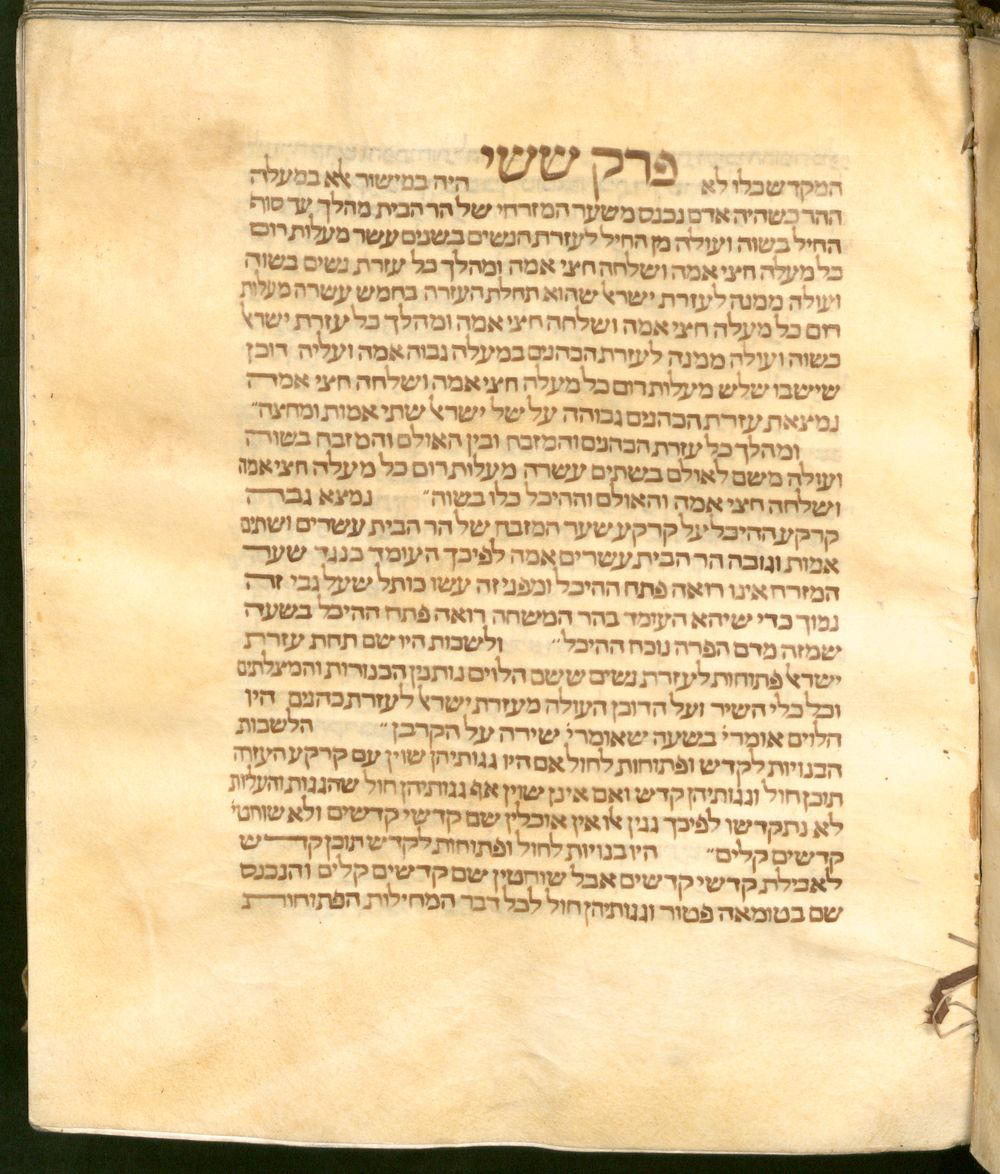 פרק ששי
המקדש שכלו לא היה במישור אלא במעלה
ההר כשהיה אדם נכנס משער המזרחי של הר הבית מהלך עד סוף
החיל בשוה ועולה מן החיל לעזרת הנשים בשנים עשר מעלות רום
כל מעלה חצי אמה ושלחה חצי אמה ומהלך כל עזרת נשים בשוה
ועולה ממנה לעזרת ישראל שהוא תחלת העזרה בחמש עשרה מעלות
רום כל מעלה חצי אמה ושלחה חצי אמה ומהלך כל עזרת ישראל
בשוה ועולה ממנה לעזרת הכהנים במעלה גבוה אמה ועליה דוכן
שיש בו שלש מעלות רום כל מעלה חצי אמה ושלחה חצי אמה
נמצאת עזרת הכהנים גבוהה על של ישראל שתי אמות ומחצה״
ומהלך כל עזרת הכהנים והמזבח ובין האולם והמזבח בשוה
ועולה משם לאולם בשתים עשרה מעלות רום כל מעלה חצי אמה
ושלחה חצי אמה והאולם וההיכל כלו בשוה״ נמצא גבה
קרקע ההיכל על קרקע שער המזבח של הר הבית עשרים ושתים
אמות וגובה הר הבית עשרים אמה לפיכך העומד כנגד שער
המזרח אינו רואה פתח ההיכל ומפני זה עשו כותל שעל גבי זה
נמוך כדי שיהא העומד בהר המשחה רואה פתח ההיכל בשעה
שמזה מדם הפרה נוכח ההיכל״ ולשכות היו שם תחת עזרת
ישראל פתוחות לעזרת נשים ששם הלוים נותנין הכנורות והמצלתים
וכל כלי השיר ועל הדוכן העולה מעזרת ישראל לעזרת כהנים היו
הלוים אומרי׳ בשעה שאומרי׳ שירה על הקרבן״ הלשכות
הבנויות לקדש ופתוחות לחול אם היו גגותיהן שוין עם קרקע העזרה
תוכן חול וגגותיהן קדש ואם אינן שוין אף גגותיהן חול שהגגות והעליות
לא נתקדשו לפיכך גגין אלו אין אוכלין שם קדשי קדשים ולא שוחטי׳
קדשים קלים״ היו בנויות לחול ופתוחות לקדש תוכן קדש
לאכילת קדשי קדשים אבל שוחטין שם קדשים קלים והנכנס
שם בטומאה פטור וגגותיהן חול לכל דבר המחילות הפתוחות